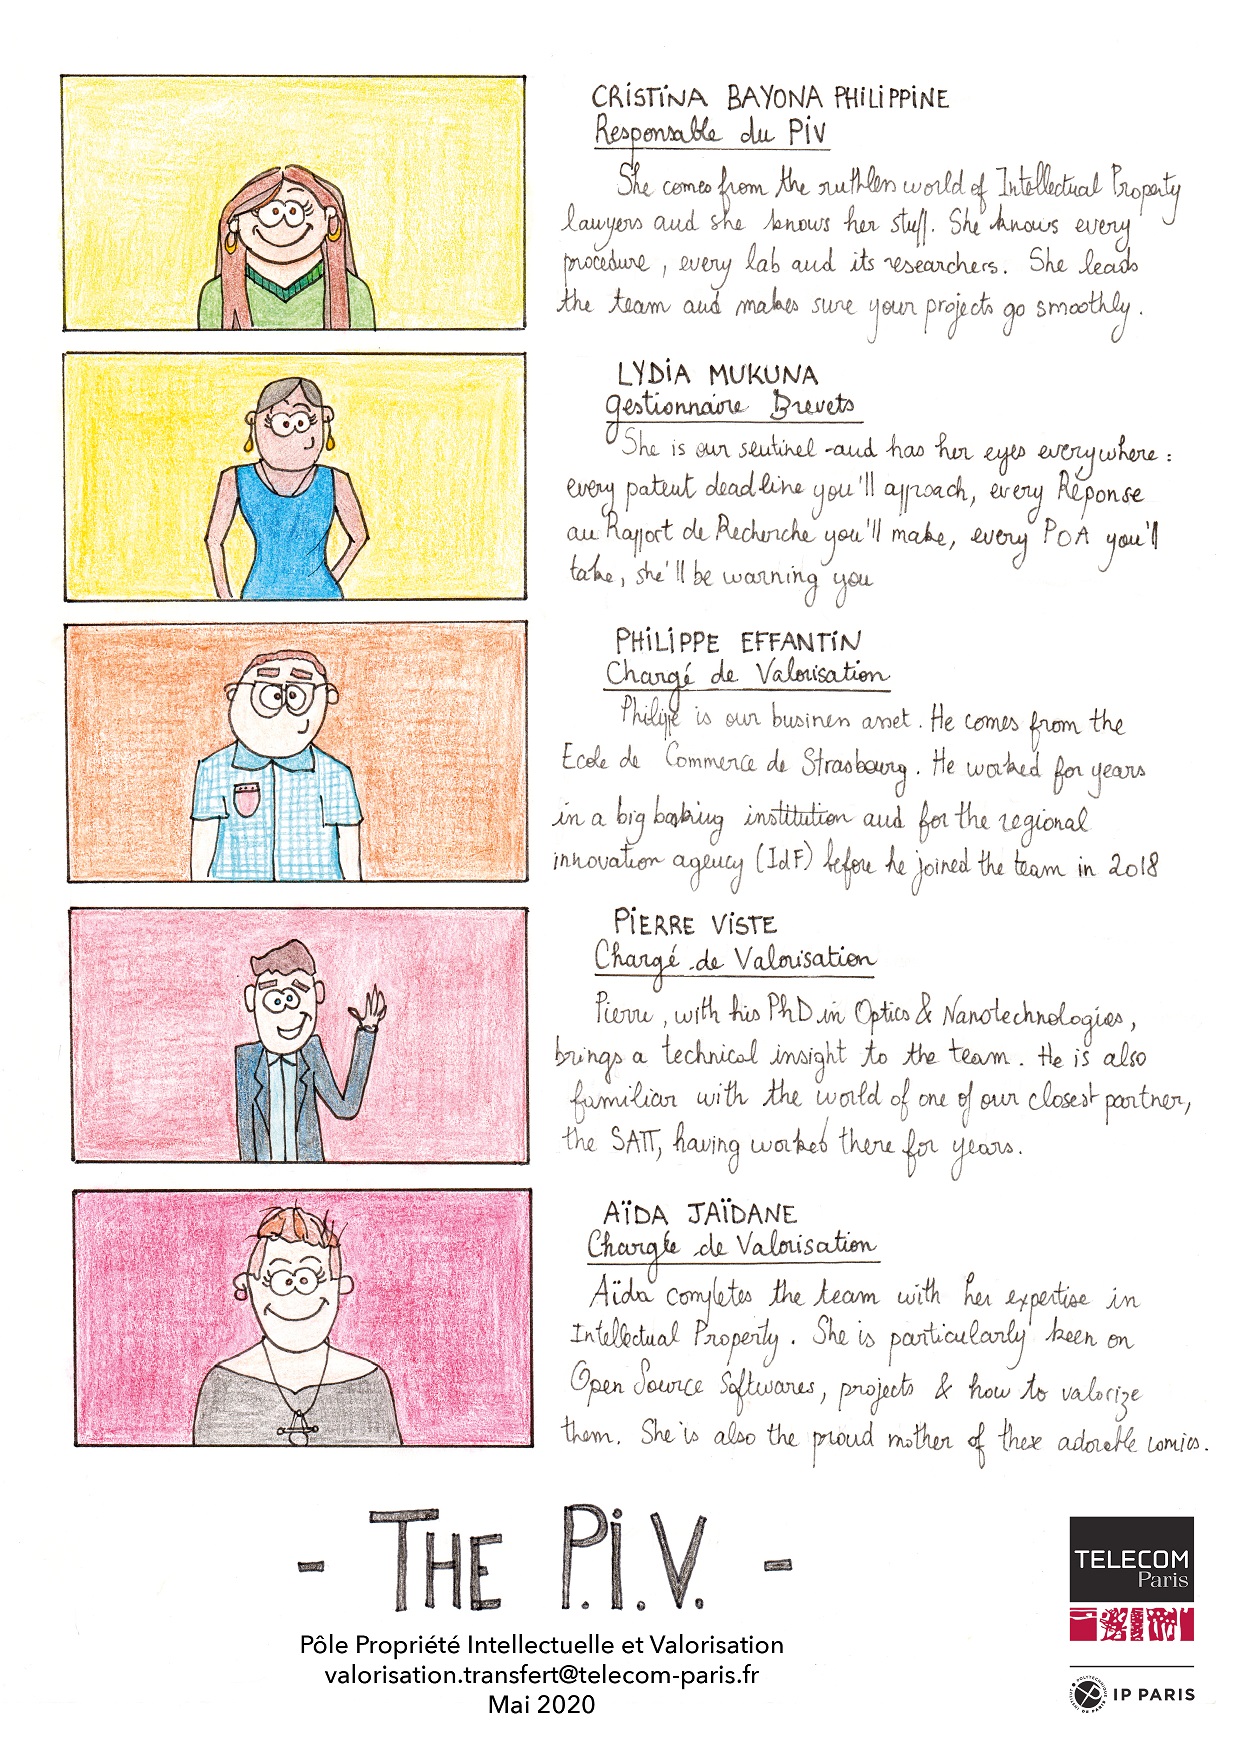 CRISTINA BAYONA PHILIPPINE
Responsable du PIV
She comes from the ruthless world of Intellectual Property
lawyers and she knows her stuff. She knows every
procedure, every lab and its researchers. She leads
the team and makes sure your projects go smoothly.
LYDIA MUKUNA
Gestionnaire Brevets
She is our sentinel and has her eyes everywhere :
every patent deadline you'll approach, every Réponse
au Rapport de Recherche you'll make, every POA you'll
take, she'll be warning you
PHILIPPE EFFANTIN
Chargé de Valorisation
Philippe is our business asset. He comes from the
Ecole de Commerce de Strasbourg. He worked for years
in a big banking institution and for the regional
innovation agency (IdF) before he joined the team in 2018
PIERRE VISTE
Chargé de Valorisation
Pierre, with his PhD in Optics & Nanotechnologies,
brings a technical insight to the team. He is also
familiar with the world of one of our closest partner,
the SATT, having worked there for years.
AÏDA JAÏDANE
Chargée de Valorisation
Aïda completes the team with her expertise in
Intellectual Property. She is particularly keen on
Open Source Softwares, projects & how to valorize
them. She is also the proud mother of these adorable comics.
- THE P.I.V. -
Pôle Propriété Intellectuelle et Valorisation
valorisation.transfert@telecom-paris.fr
Mai 2020
TELECOM
Paris
IP PARIS